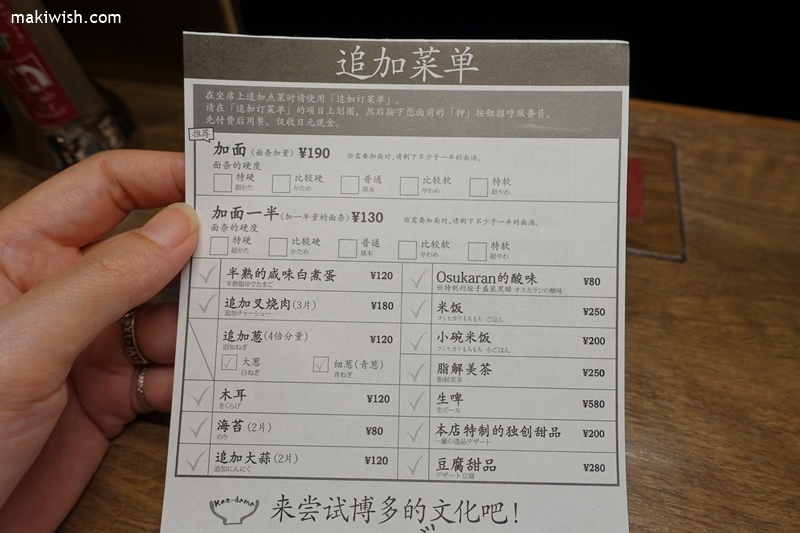 makiwish.com
追加菜单
在坐席上追加点菜时请使用「追加订菜单」。
请在「追加订菜单」的项目上划圈，然后按下您面前的「押」按钮招呼服务员。
先付费后用餐。仅收日元现金。
推荐
加面(面条加量) ¥190 ※需要加面时,请剩下不少于一半的面汤。
面条的硬度
特硬 比较硬 普通 比较软 特软
超かた かため 基本 やわめ 超やわ
加面一半(加一半量的面条) ¥130 ※需要加面时,请剩下不少于一半的面汤。
面条的硬度
特硬 比较硬 普通 比较软 特软
超かた かため 基本 やわめ 超やわ
半熟的咸味白煮蛋 ¥120
半熟塩ゆでたまご
追加叉烧肉(3片) ¥180
追加チャーシュー
追加葱(4倍分量) ¥120
追加ねぎ
大葱 细葱(青葱)
白ねぎ 青ねぎ
木耳 ¥120
きくらげ
海苔(2片) ¥80
のり
追加大蒜(2片) ¥120
追加にんにく
Osukaran的酸味 ¥80
※特制的坛子盛装黑醋 オスカランの酸味
米饭 ¥250
コシヒカリもちもち ごはん
小碗米饭 ¥200
コシヒカリもちもち 小ごはん
脂解美茶 ¥250
脂解美茶
生啤 ¥580
生ビール
本店特制的独创甜品 ¥200
一蘭の逸品デザート
豆腐甜品 ¥280
デザート豆腐
Kae-dama
来尝试博多的文化吧!